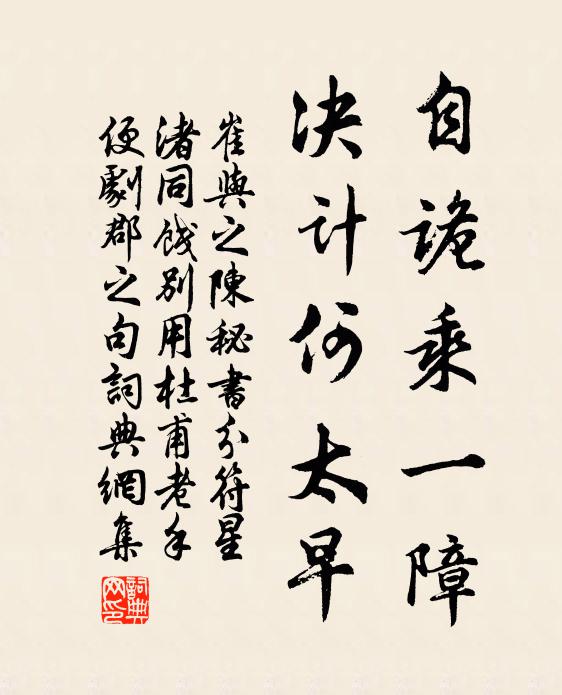 自詭乘一障
决計何太早
崔與之陳秘書分符星
渚同餞別用杜甫老手
便劇郡之句詞典網集
詞典网印